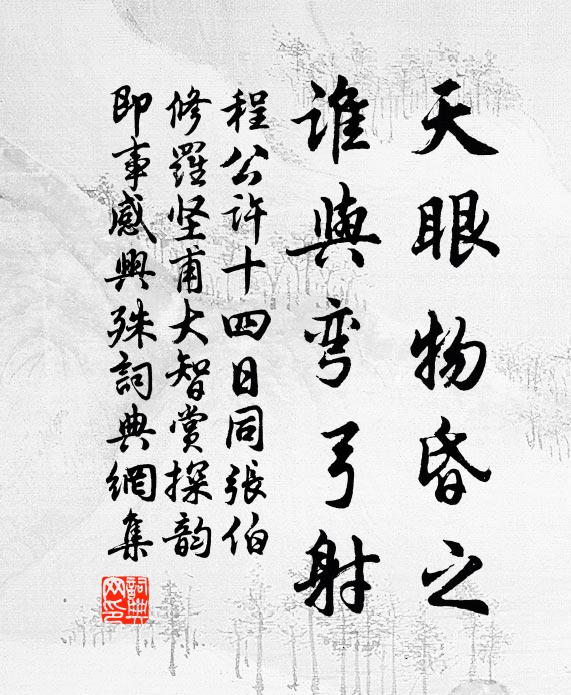 天眼物昏之
誰與彎弓射
程公许十四日同張伯
修羅坚甫大智赏探韵
即事感興殊詞典網集
詞典网印